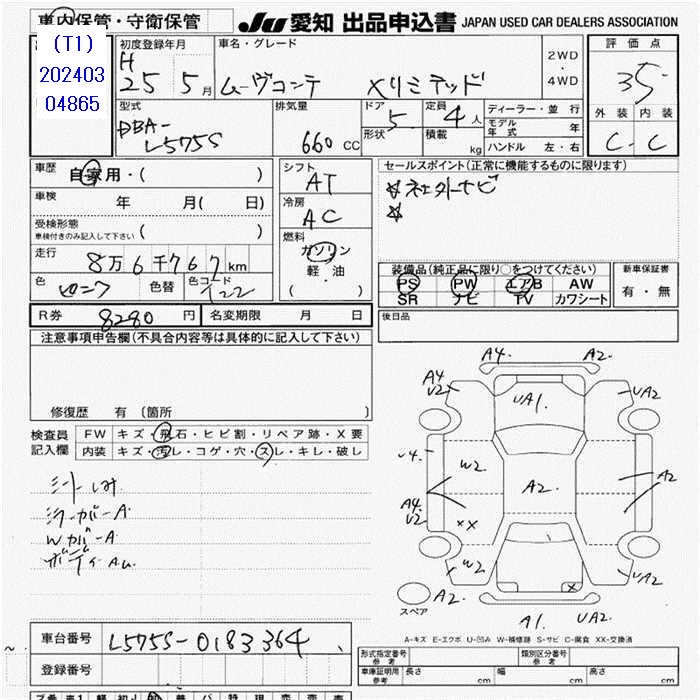 車内保管・守衛保管
JU 愛知 出品申込書 JAPAN USED CAR DEALERS ASSOCIATION
(T1)
202403
04865
初度登録年月
H
25 5月
車名・グレード
ムーヴコンテ Xリミテッド
2WD
4WD
評価点
3.5
外装 内装
C C
型式
DBA-
L575S
排気量
660 CC
ドア 5
形状
定員 4人
積載 kg
ディーラー・並行
モデル年式 年
ハンドル 左・右
車歴
自家用・( )
車検 年 月( 日)
受検形態
車検付きのみ記入して下さい ( )
走行
8万6千767km
色 色替 色コード
シフト
AT
冷房
AC
燃料
ガソリン
軽油
( ・ )
セールスポイント(正常に機能するものに限ります)
☆社外ナビ
☆
装備品(純正品に限り○をつけてください)
PS PW エアB AW
SR ナビ TV カワシート
新車保証書
有・無
R券 8280円
名変期限 月 日
後日品
注意事項申告欄(不具合内容等は具体的に記入して下さい)
修復歴 有 〔箇所 〕
検査員
記入欄
FW キズ・飛石・ヒビ割・リペア跡・X要
内装 キズ・汚レ・コゲ・穴・スレ・キレ・破レ
シートしみ
ミラーカバーA
WカバーA
ボディAu
A4. A2.
A4
U2
UA1.
UA2
W2
A2.
A2
A4
U2
XX
W2
X
UA2
スペア
A2.
A1. UA2.
A-キズ E-エクボ U-凹み W-補修跡 S-サビ C-腐食 XX-交換済
車台番号 L575S-0183364
登録番号
形式指定番号
参考
類別区分番号
参考
車庫証明用
参考
長さ cm 幅 cm 高さ cm